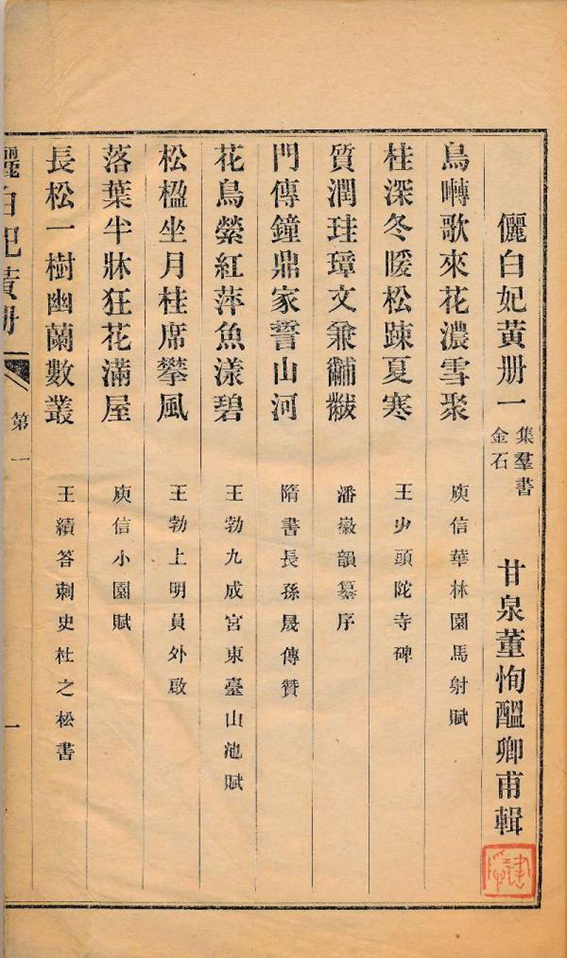 儷白妃黃册一 集羣書金石 甘泉董恂醞卿甫輯
鳥囀歌來花濃雪聚 庾信華林園馬射賦
桂深冬暖松踈夏寒 王屮頭陀寺碑
質潤珪璋文兼黼黻 潘徽韻纂序
門傳鐘鼎家誓山河 隋書長孫晟傳贊
花鳥縈紅萍魚漾碧 王勃九成宮東臺山池賦
松楹坐月桂席攀風 王勃上明員外啟
落葉半牀狂花滿屋 庾信小園賦
長松一樹幽蘭數叢 王績答刺史杜之松書
儷白妃黃册 第一 一